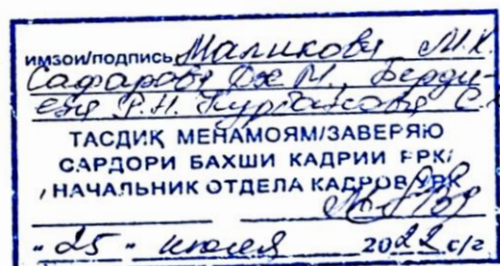 имзои/подпись Маликова М.К
Сафарова Дж М. Берди-
ева Р.Н. Курбанова С.
ТАСДИҚ МЕНАМОЯМ/ЗАВЕРЯЮ
САРДОРИ БАХШИ КАДРИИ РРК/
НАЧАЛЬНИК ОТДЕЛА КАДРОВ УВК
"25" июля 2022 с/г